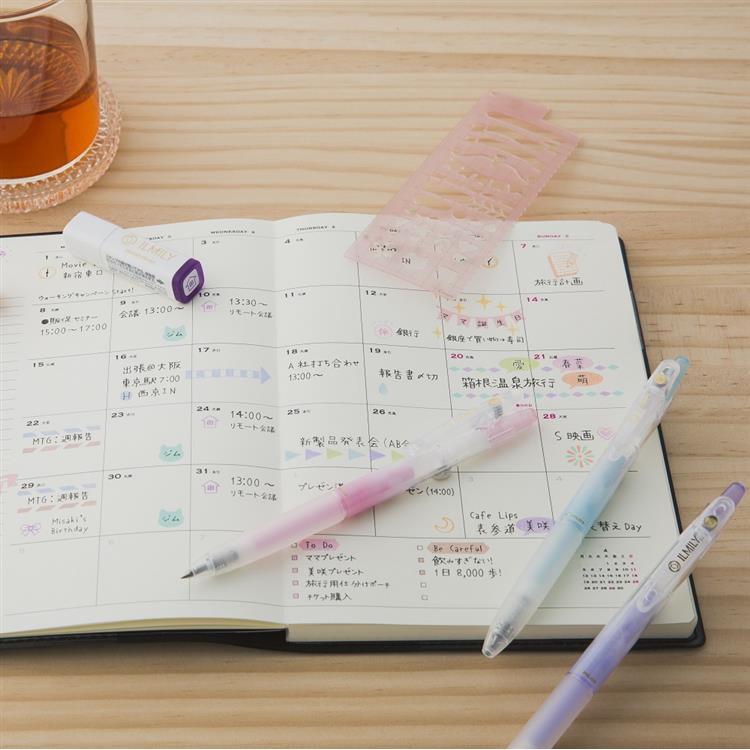 WEDNESDAY
THURSDAY
SUNDAY
3
4
7
Movie
新宿東口
ILMILY
IN
旅行計画
ウォーキングキャンペーン Start!
8
9
10
11
12
14
会議 13:00〜
13:30〜
リモート会議
15:00〜17:00
ジム
銀行
ママ誕生日
銀座で買い物→寿司
15
16
17
18
19
20
21
出張@大阪
東京駅7:00
西京IN
A社打ち合わせ
13:00〜
報告書〆切
愛
春菜
萌
箱根温泉旅行
22
23
24
25
26
28
MTG:週報告
ジム
14:00〜
リモート会議
新製品発表会(AB
S映画
29
30
31
MTG:週報告
Misaki's
Birthday
ジム
13:00〜
リモート会議
プレゼン
ゼン(14:00)
Cafe Lips
表参道
美咲
替え Day
To Do
ママプレゼント
美咲プレゼント
旅行用仕分けポーチ
チケット購入
Be Careful
飲みすぎない!
1日 8,000 歩!
4
ILMILY